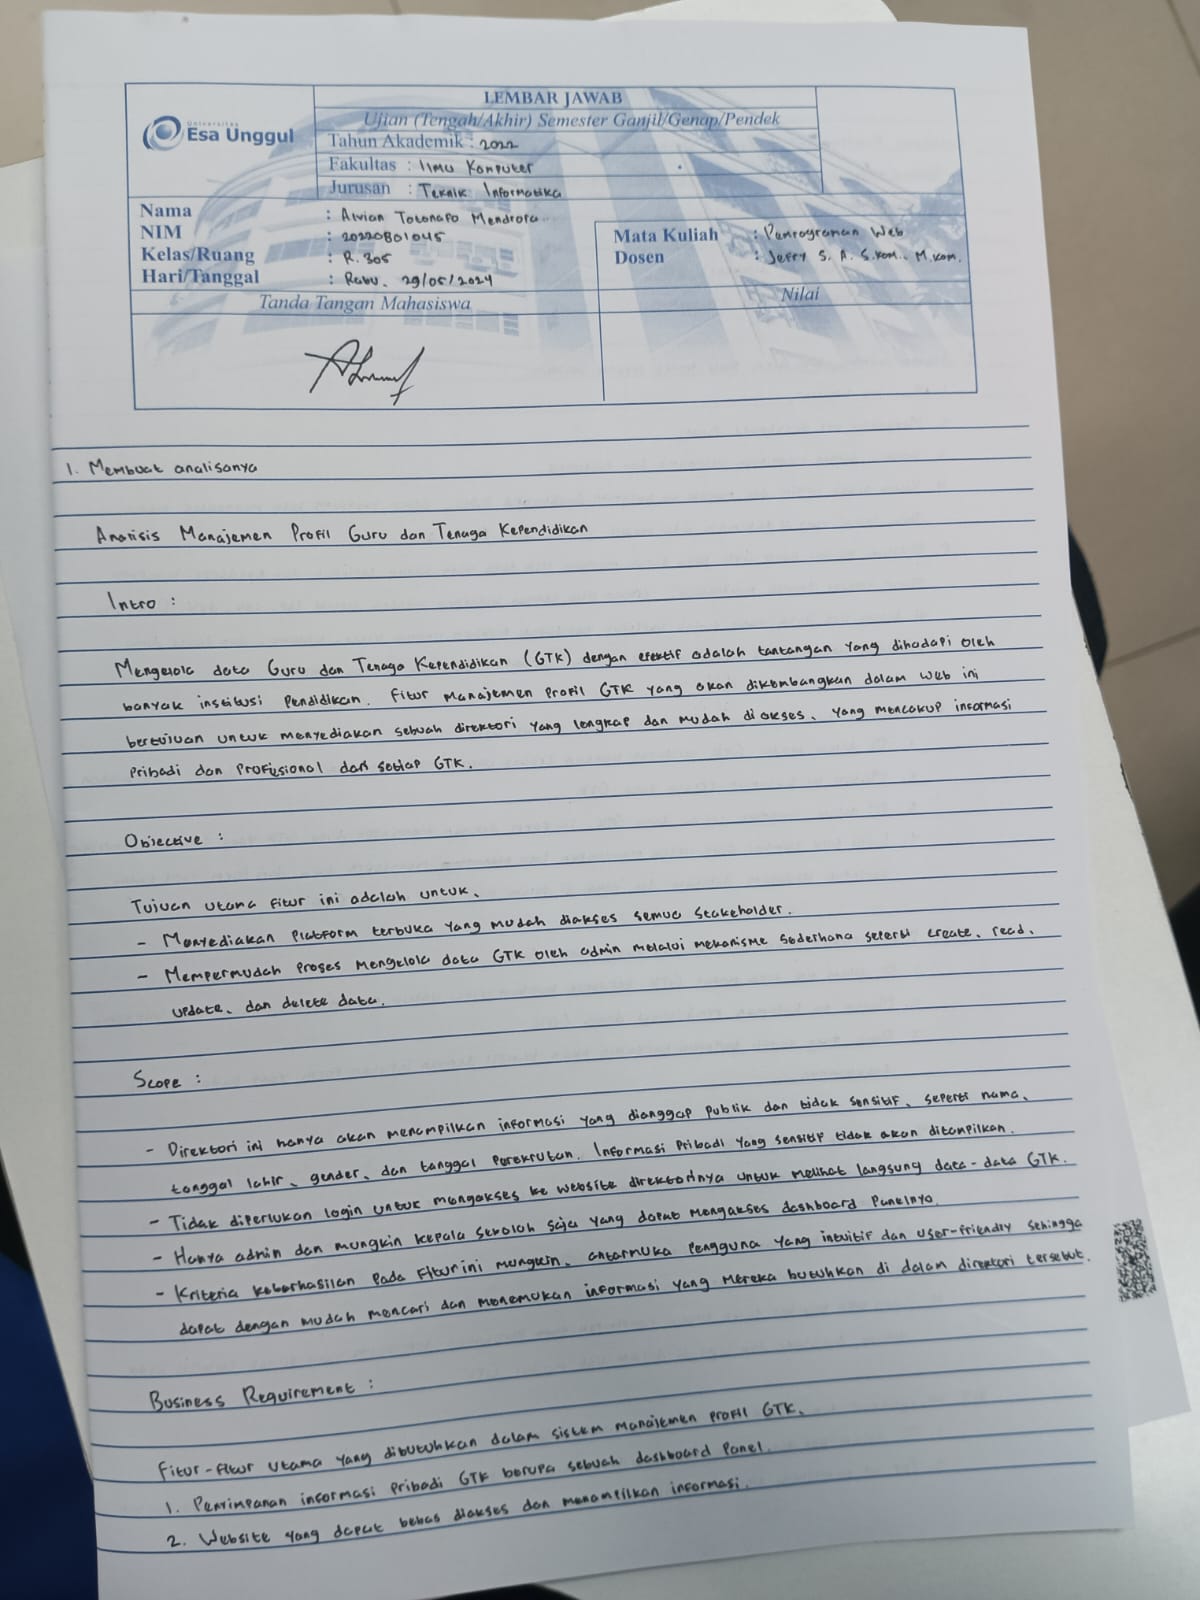 LEMBAR JAWAB
Universitas
Esa Unggul
Ujian (Tengah/Akhir) Semester Ganjil/Genap/Pendek
Tahun Akademik : 2022
Fakultas : Ilmu Komputer
Jurusan : Teknik Informatika
Nama : Alvian Totonafo Mendrofa
NIM : 20220801045
Kelas/Ruang : R. 305
Hari/Tanggal : Rabu, 29/05/2024
Mata Kuliah : Pemrograman Web
Dosen : Jefry S. A. S.Kom., M.Kom.
Tanda Tangan Mahasiswa
Nilai
1. Membuat analisanya
Analisis Manajemen Profil Guru dan Tenaga Kependidikan
Intro :
Mengelola data Guru dan Tenaga Kependidikan (GTK) dengan efektif adalah tantangan yang dihadapi oleh
banyak institusi pendidikan. Fitur manajemen profil GTK yang akan dikembangkan dalam web ini
bertujuan untuk menyediakan sebuah direktori yang lengkap dan mudah diakses, yang mencakup informasi
pribadi dan profesional dari setiap GTK.
Objective :
Tujuan utama fitur ini adalah untuk,
- Menyediakan platform terbuka yang mudah diakses semua stakeholder.
- Mempermudah proses mengelola data GTK oleh admin melalui mekanisme sederhana seperti create, read,
update, dan delete data.
Scope :
- Direktori ini hanya akan menampilkan informasi yang dianggap publik dan tidak sensitif, seperti nama,
tanggal lahir, gender, dan tanggal perekrutan. Informasi pribadi yang sensitif tidak akan ditampilkan.
- Tidak diperlukan login untuk mengakses ke website direktorinya untuk melihat langsung data-data GTK.
- Hanya admin dan mungkin kepala sekolah saja yang dapat mengakses dashboard panelnya.
- Kriteria keberhasilan pada fitur ini mungkin, antarmuka pengguna yang intuitif dan user-friendly sehingga
dapat dengan mudah mencari dan menemukan informasi yang mereka butuhkan di dalam direktori tersebut.
Business Requirement :
Fitur-fitur utama yang dibutuhkan dalam sistem manajemen profil GTK,
1. Penyimpanan informasi pribadi GTK berupa sebuah dashboard panel.
2. Website yang dapat bebas diakses dan menampilkan informasi.